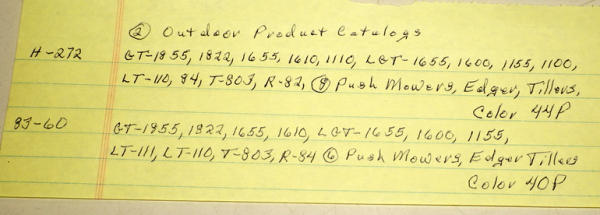 ② Outdoor Product Catalogs
H-272 GT-1855, 1822, 1655, 1610, 1110, LGT-1655, 1600, 1155, 1100,
LT-110, 84, T-803, R-82, ⑧ Push Mowers, Edger, Tillers,
Color 44P
83-60 GT-1855, 1822, 1655, 1610, LGT-1655, 1600, 1155,
LT-111, LT-110, T-803, R-84 ⑥ Push Mowers, Edger Tillers
Color 40P